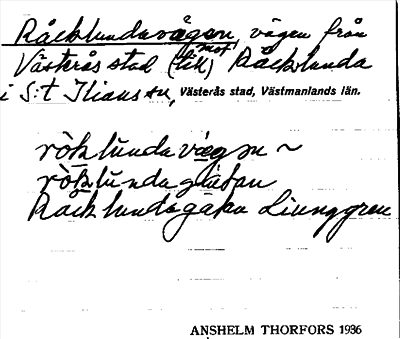 Råcklundavägen, vägen från
Västerås stad (till) mot Råcklunda
i S:t Ilians sn, Västerås stad, Västmanlands län.
ròklùndavä̀gen ~
ròklùndagatan
Råcklundagatan Ljunggren
ANSHELM THORFORS 1936